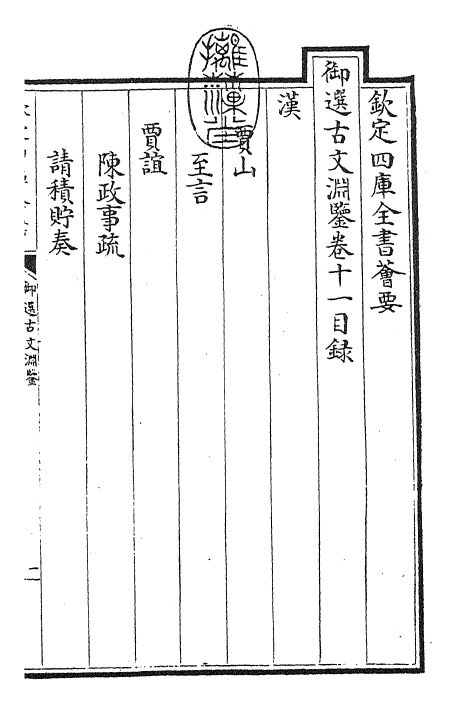 欽定四庫全書薈要
御選古文淵鑒卷十一目録
漢
賈山
至言
賈誼
陳政事疏
請積貯奏
御選古文淵鑒